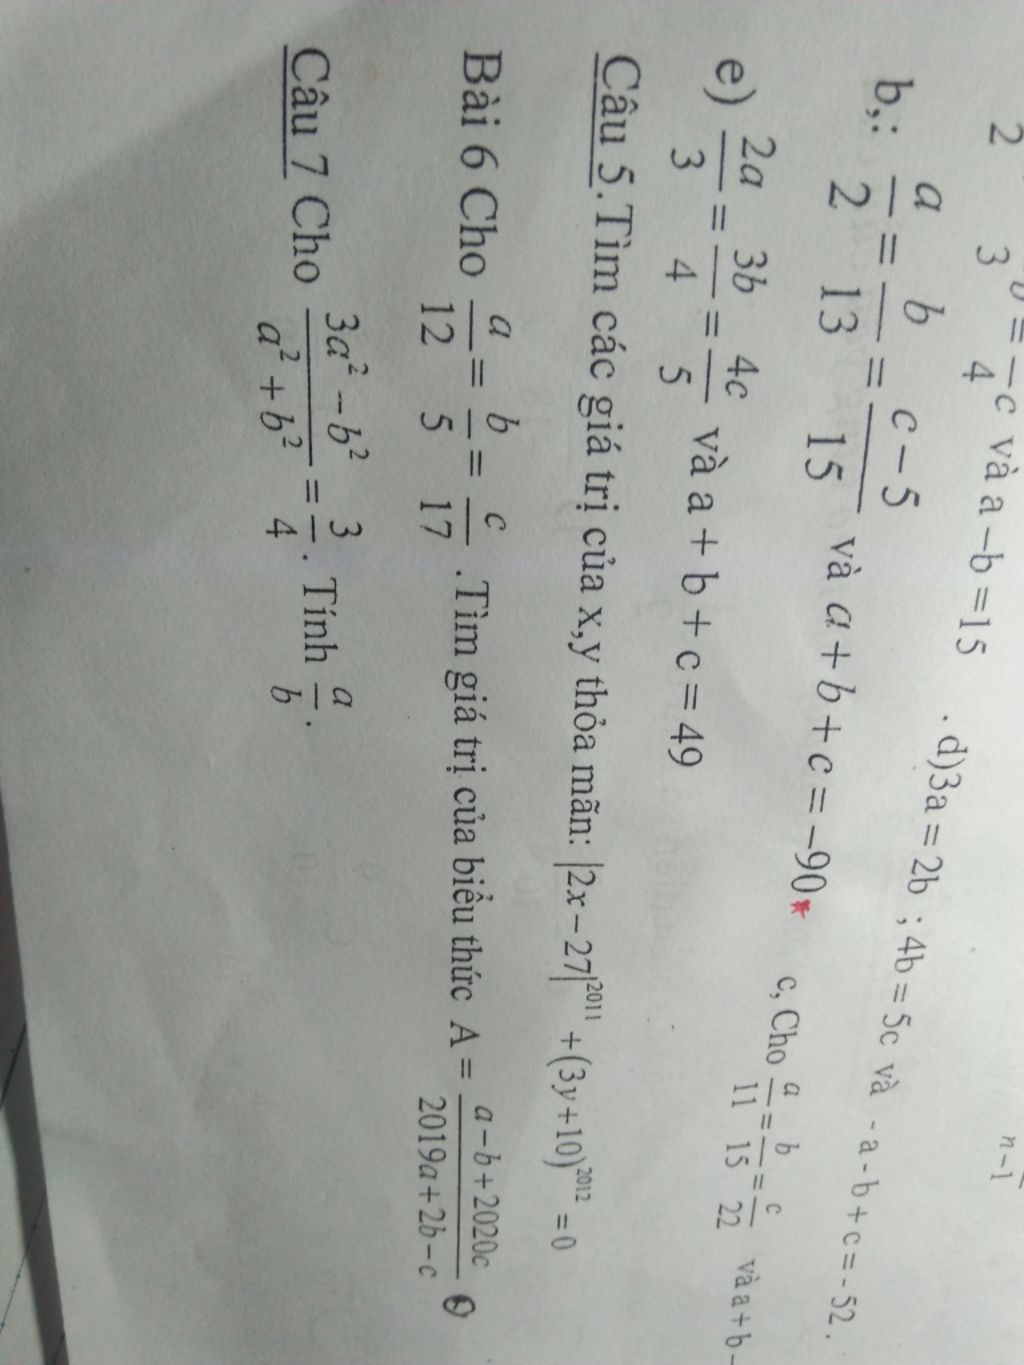 b,: a/2 = b/13 = c-5/15 và a + b + c = -90*
c và a - b = 15 . d)3a = 2b ; 4b = 5c và - a - b + c = - 52 .
c, Cho a/11 = b/15 = c/22 và a + b -
e) 2a/3 = 3b/4 = 4c/5 và a + b + c = 49
Câu 5.Tìm các giá trị của x,y thỏa mãn: |2x - 27|^2011 + (3y + 10)^2012 = 0
Bài 6 Cho a/12 = b/5 = c/17 . Tìm giá trị của biểu thức A = a - b + 2020c / 2019a + 2b - c
Câu 7 Cho 3a² - b² / a² + b² = 3/4 . Tính a/b .